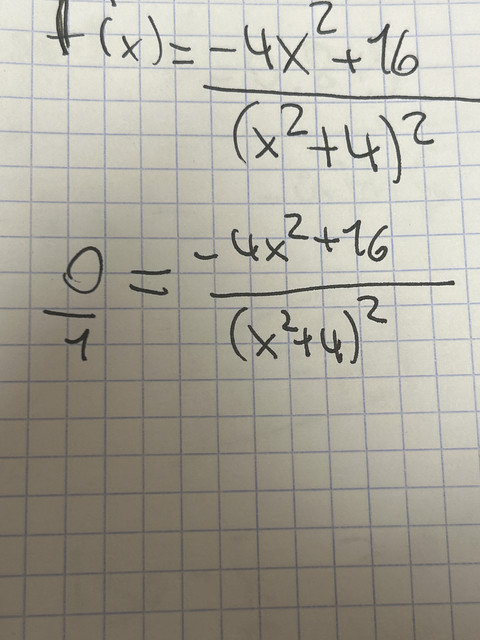 f'(x) = -4x²+16 / (x²+4)²
0/1 = -4x²+16 / (x²+4)²